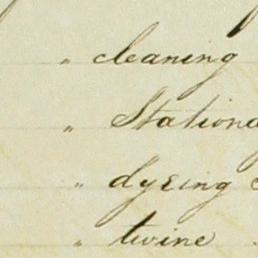 " cleaning
" Stationa
" dyeing
" twine